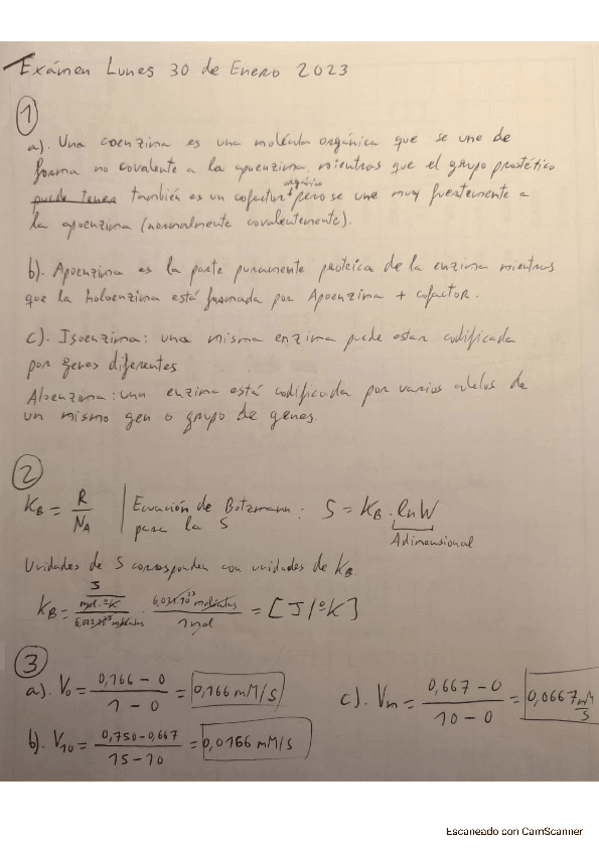 Exámen Lunes 30 de Enero 2023
1
a). Una coenzima es una molécula orgánica que se une de
forma no covalente a la apoenzima, mientras que el grupo prostético
puede tener también es un cofactor orgánico pero se une muy fuertemente a
la apoenzima (normalmente covalentemente).
b). Apoenzima es la parte puramente proteica de la enzima mientras
que la holoenzima está formada por Apoenzima + cofactor.
c). Isoenzima: una misma enzima puede estar codificada
por genes diferentes
Aloenzima: una enzima está codificada por varios alelos de
un mismo gen o grupo de genes.
2
KB = R / NA | Ecuación de Botzmann: S = KB . lnW
para la S
Adimensional
Unidades de S corresponden con unidades de KB.
KB = J / mol . ºK / 6,023.10²³ moléculas . 6,023.10²³ moléculas / 1 mol = [J/ºK]
3
a). V0 = 0,166 - 0 / 1 - 0 = 0,166 mM/s
c). Vm = 0,667 - 0 / 10 - 0 = 0,0667 mM/s
b). V10 = 0,750 - 0,667 / 15 - 10 = 0,0166 mM/s
Escaneado con CamScanner